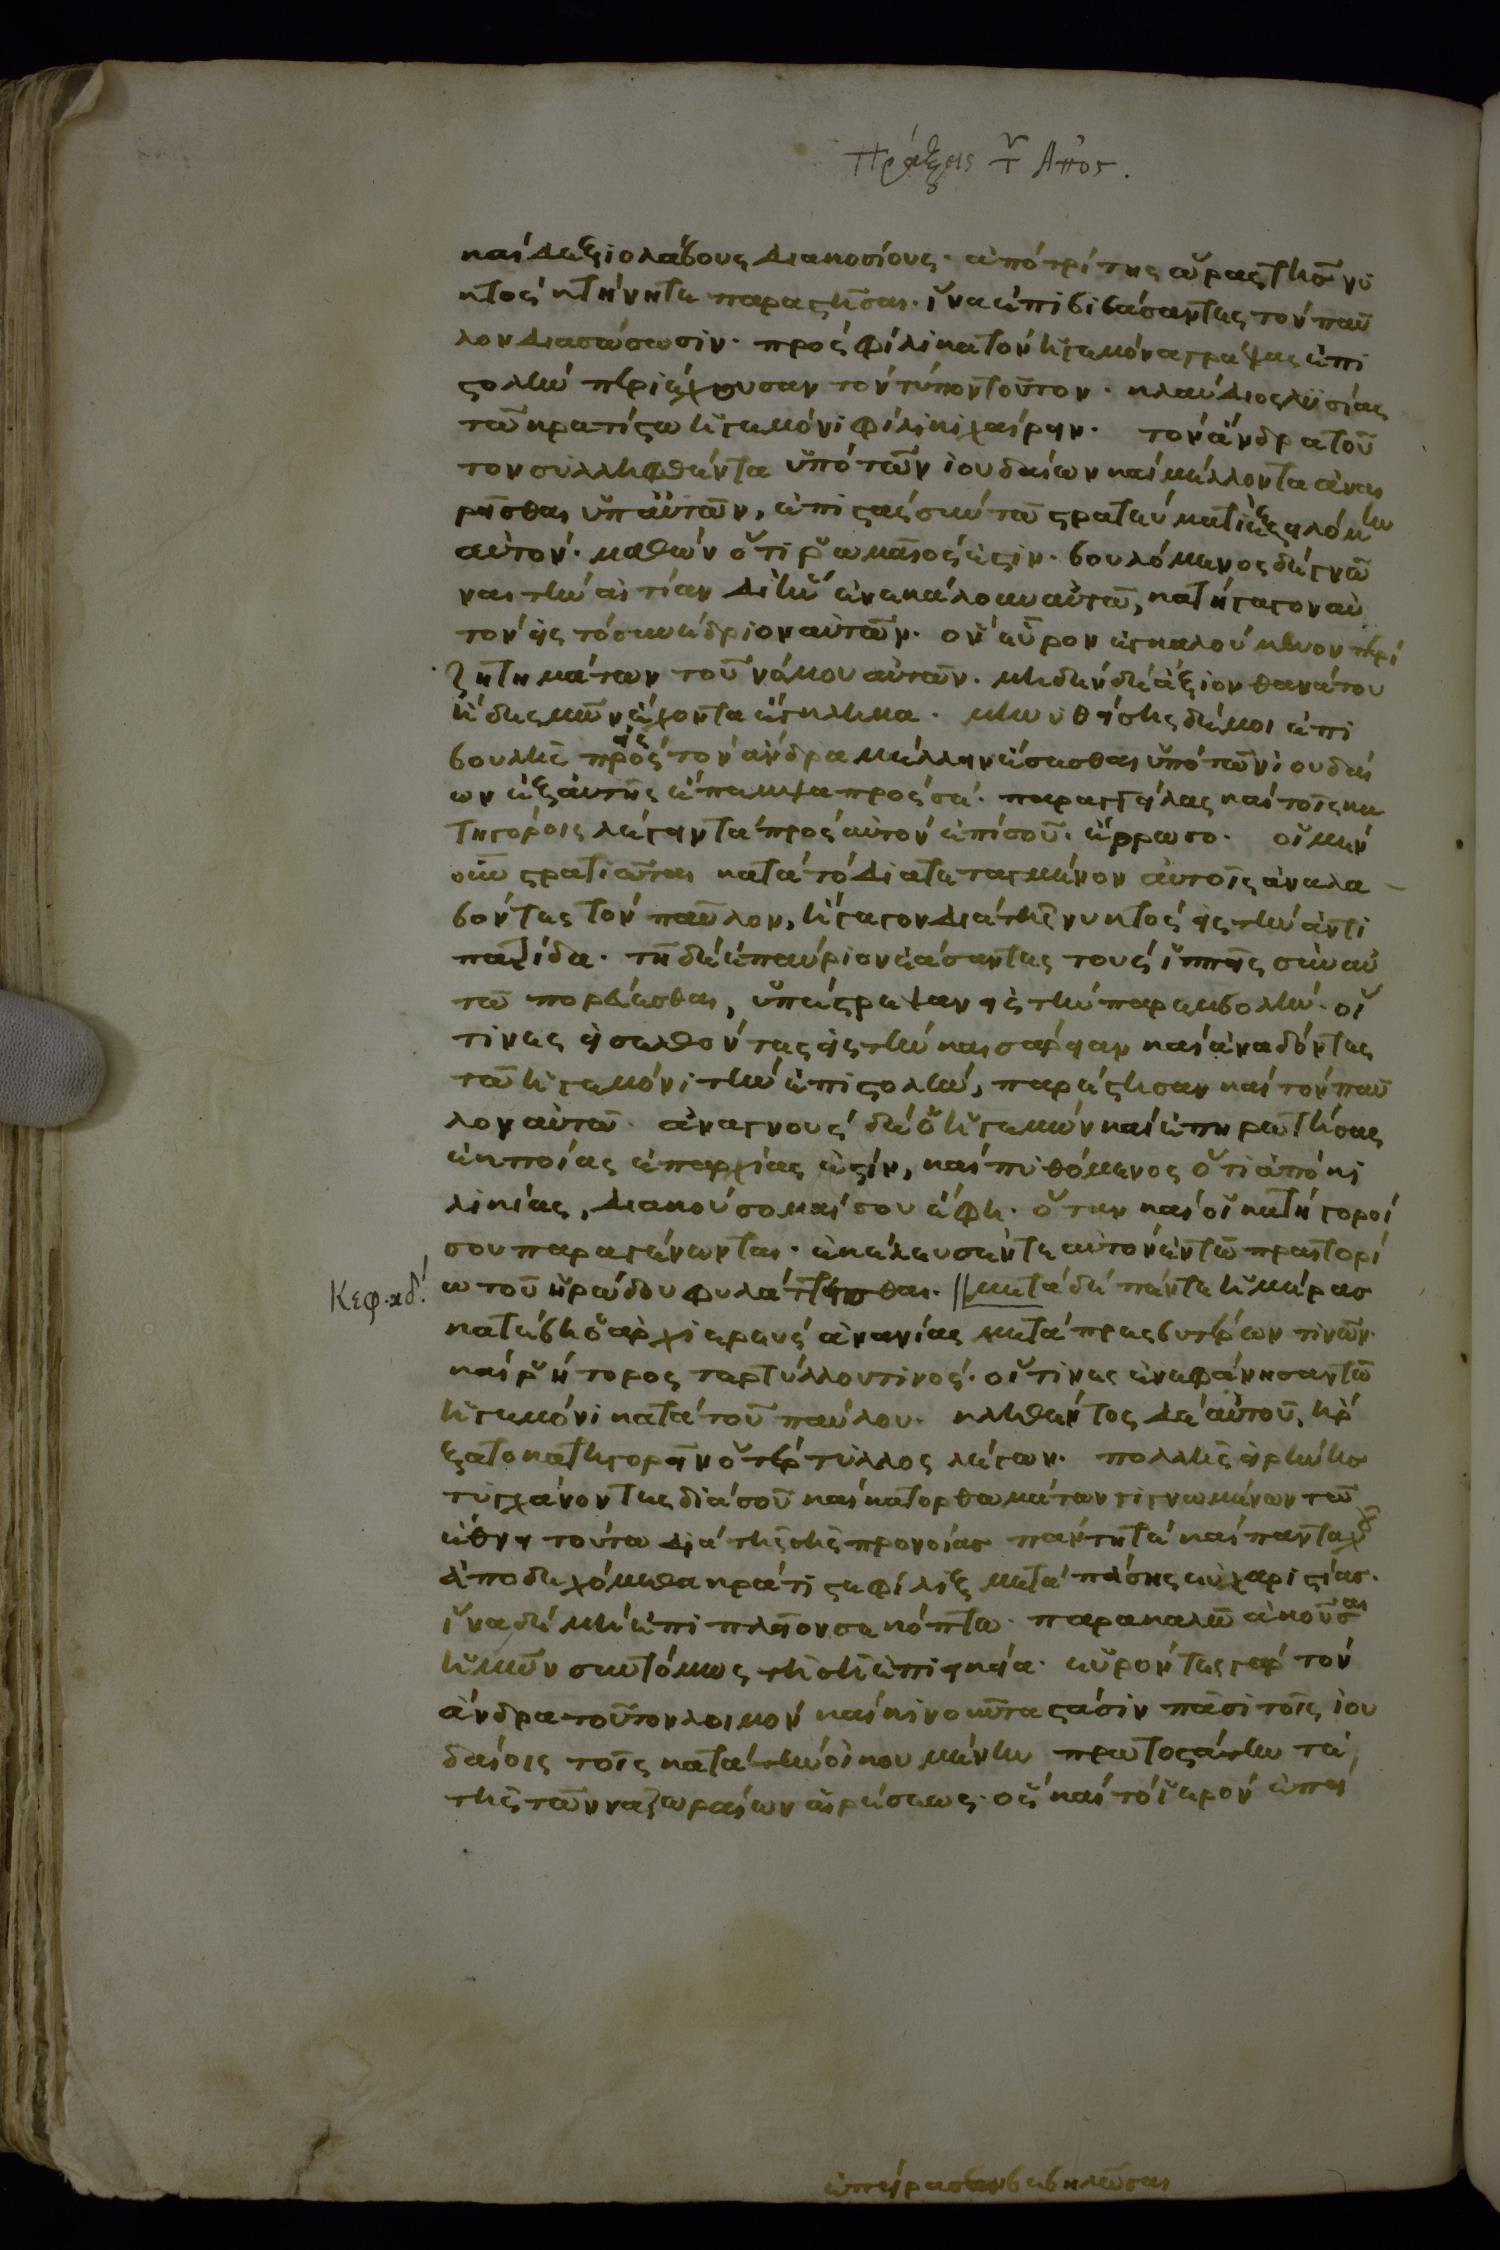 Πράξεις τ͂ Ἀπος.
καὶ δεξιολάβους διακοσίους· ἀπὸ τρίτης ὥρας τῆς νυ
κτὸς κτήνητε παραστῆσαι· ἵνα ἐπιβιβάσαντες τὸν παῦ
λον διασώσωσιν· πρὸς φίλικα τὸν ἡγεμόνα γράψας ἐπι
στολὴν περιέχουσαν τὸν τύπον τοῦτον· κλαύδιος λυσίας
τῶ κρατίστω ἡγεμόνι φίλικι χαίρειν· τὸν ἄνδρα τοῦ
τον συλληφθέντα ὑπὸ τῶν ἰουδαίων καὶ μέλλοντα ἀναι
ρεῖσθαι ὑπ' αὐτῶν, ἐπιστὰς σὺν τῶ στρατεύματι ἐξειλόμην
αὐτόν· μαθὼν ὅτι ῥωμαῖος ἐστίν· βουλόμενος δὲ γνῶ
ναι τὴν αἰτίαν δι' ἣν ἐνεκάλουν αὐτῶ, κατήγαγον αὐ
τὸν εἰς τὸ συνέδριον αὐτῶν· ὃν εὗρον ἐγκαλούμενον περὶ
ζητημάτων τοῦ νόμου αὐτῶν· μηδὲν δὲ ἄξιον θανάτου
ἢ δεσμῶν ἔχοντα ἔγκλημα· μηνυθείσης δέ μοι ἐπι
βουλῆς εἰς τὸν ἄνδρα μέλλειν ἔσεσθαι ὑπὸ τῶν ἰουδαί
ων ἐξαυτῆς ἔπεμψα πρὸς σέ· παραγγείλας καὶ τοῖς κα
τηγόροις λέγειν τὰ πρὸς αὐτὸν ἐπὶ σοῦ· ἔρρωσο· οἱ μὲν
οὖν στρατιῶται κατὰ τὸ διατεταγμένον αὐτοῖς ἀναλα
βόντες τὸν παῦλον, ἤγαγον διὰ τῆς νυκτὸς εἰς τὴν ἀντι
πατρίδα· τῆ δὲ ἐπαύριον ἐάσαντες τοὺς ἱππεῖς σὺν αὐ
τῶ πορεύεσθαι, ὑπέστρεψαν εἰς τὴν παρεμβολήν· οἵ
τινες εἰσελθόντες εἰς τὴν καισάρειαν καὶ ἀναδόντες
τῶ ἡγεμόνι τὴν ἐπιστολήν, παρέστησαν καὶ τὸν παῦ
λον αὐτῶ· ἀναγνοὺς δὲ ὁ ἡγεμὼν καὶ ἐπηρωτήσας
ἐκ ποίας ἐπαρχίας ἐστίν, καὶ πυθόμενος ὅτι ἀπὸ κι
λικίας, διακούσομαί σου ἔφη· ὅταν καὶ οἱ κατήγοροί
σου παραγένωνται· ἐκέλευσέν τε αὐτὸν ἐν τῶ πραιτορί
Κεφ. κδ'. ω τοῦ ἡρώδου φυλάττεσθαι· // μετὰ δὲ πέντε ἡμέρας
κατέβη ὁ ἀρχιερεὺς ἀνανίας μετὰ πρεσβυτέρων τινῶν·
καὶ ῥήτορος τερτύλλου τινός· οἵτινες ἐνεφάνησαν τῶ
ἡγεμόνι κατὰ τοῦ παύλου· κληθέντος δὲ αὐτοῦ, ἤρ
ξατο κατηγορεῖν ὁ τερτύλλος λέγων· πολλῆς εἰρήνης
τυγχάνοντες διὰ σοῦ καὶ κατορθωμάτων γιγνωμένων τῶ
ἔθνει τούτω διὰ τῆς σῆς προνοίας πάντη τὲ καὶ πανταχοῦ
ἀποδεχόμεθα κράτιστε φίλιξ μετὰ πάσης εὐχαριστίας·
ἵνα δὲ μὴ ἐπὶ πλεῖόν σε κόπτω· παρακαλῶ ἀκοῦσαι
ἡμῶν συντόμως τῆ σῆ ἐπιεικεία· εὑρόντες γὰρ τὸν
ἄνδρα τοῦτον λοιμὸν καὶ κινοῦντα στάσιν πᾶσι τοῖς ἰου
δαίοις τοῖς κατὰ τὴν οἰκουμένην πρωτοστάτην τὲ
τῆς τῶν ναζωραίων αἱρέσεως· ὃς καὶ τὸ ἱερὸν ἐπεί
ἐπείρασεν βεβηλῶσαι